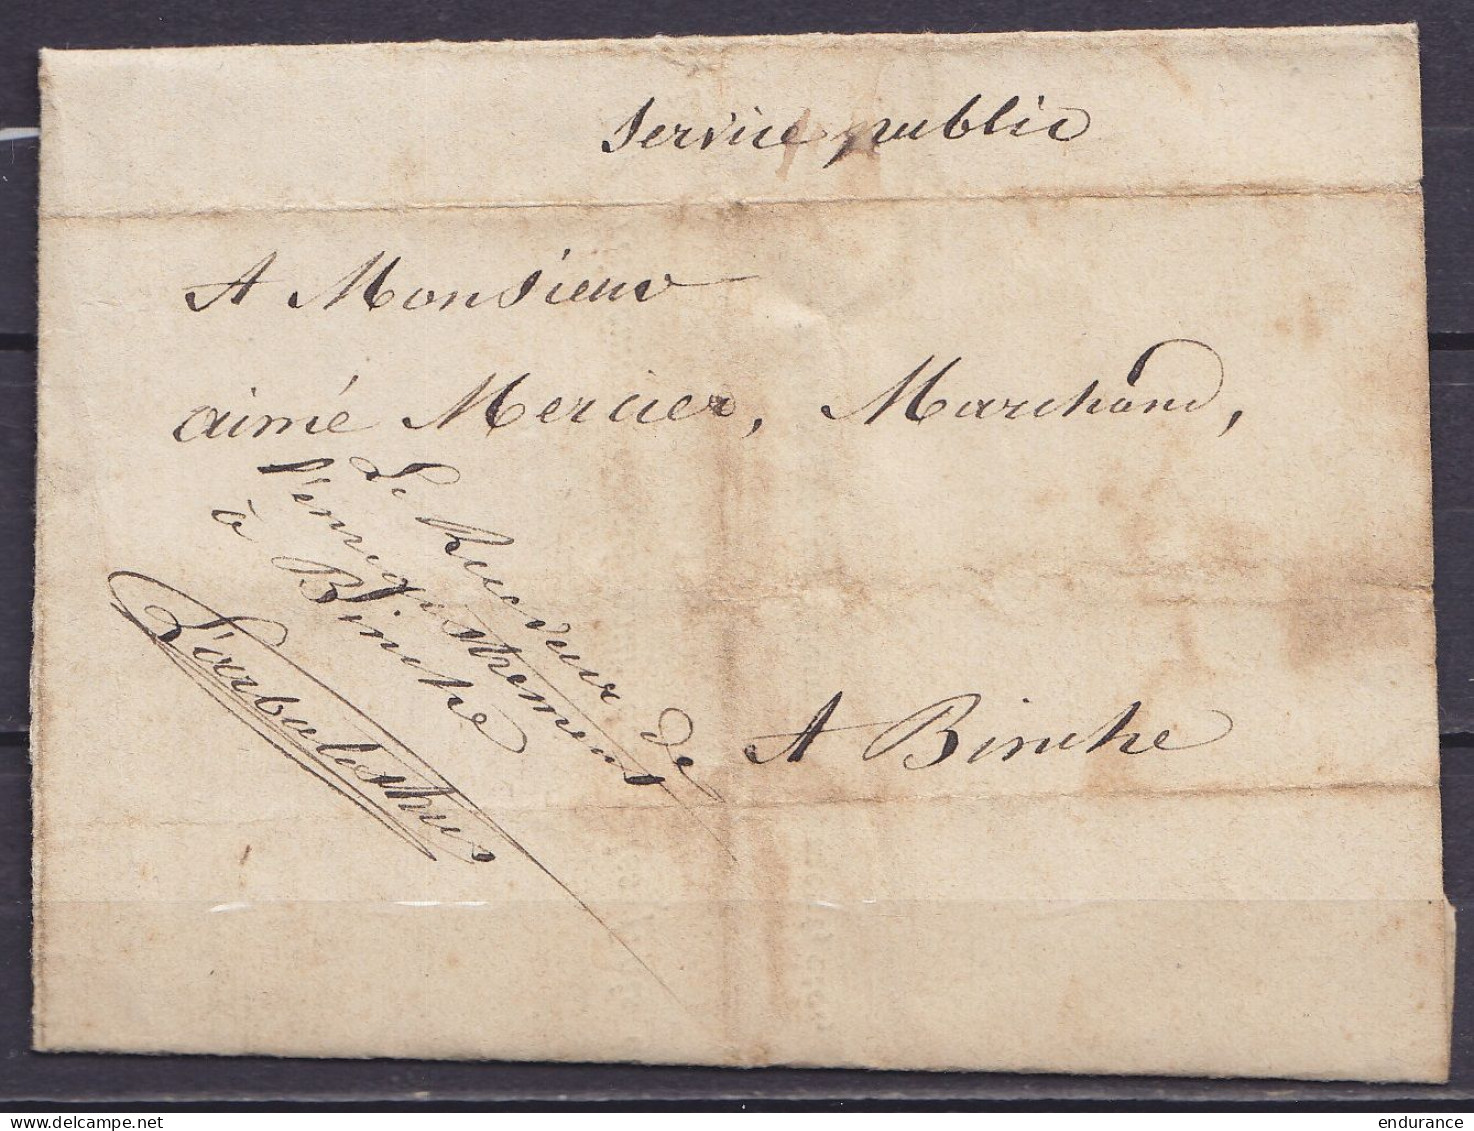 Service public
A Monsieur
aimé Mercier, Marchand,
Le Receveur de
l'enregistrement
à Binche
A Binche
delcampe.net
endurance